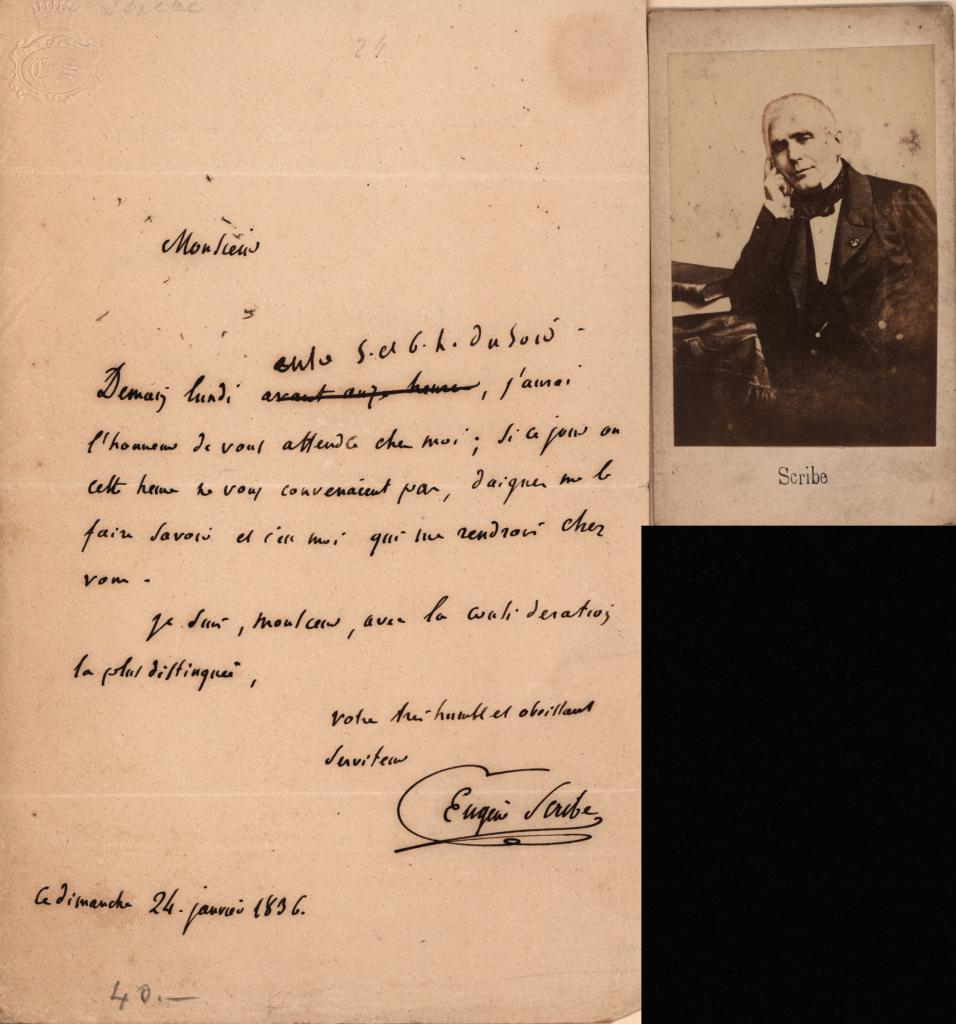 Scribe
24
E S
Monsieur
entre 5. et 6. h. du soir.
Demain lundi avant onze heures, j'aurai
l'honneur de vous attendre chez moi ; si ce jour ou
cette heure ne vous convenaient pas, daignez me le
faire savoir et c'est moi qui me rendrai chez
vous.
je suis, monsieur, avec la considération
la plus distinguée,
votre très humble et obéissant
serviteur
Eugène Scribe
Ce dimanche 24. janvier 1836.
40.—
Scribe